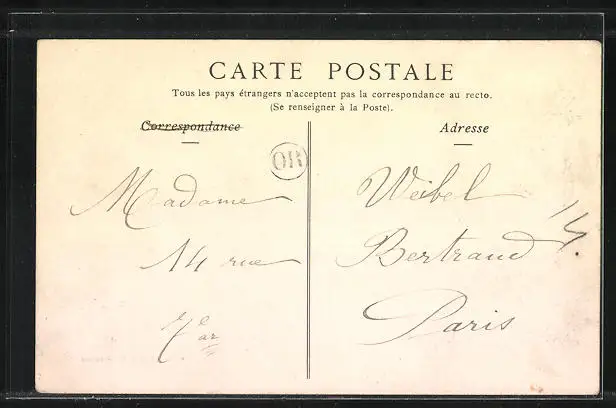 CARTE POSTALE
Tous les pays étrangers n'acceptent pas la correspondance au recto.
(Se renseigner à la Poste).
Correspondance
Adresse
OR
Madame Weibel
14 rue Bertrand
Paris
14